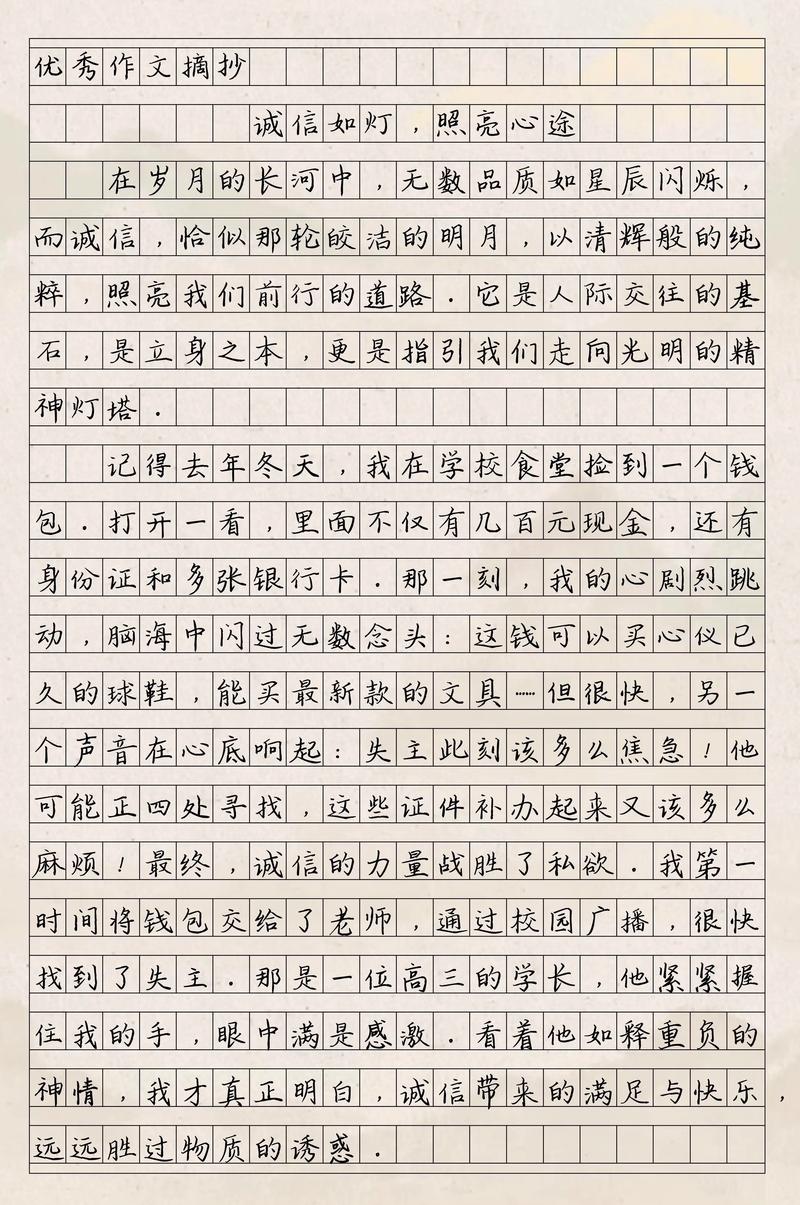 优秀作文摘抄
诚信如灯，照亮心途
在岁月的长河中，无数品质如星辰闪烁，
而诚信，恰似那轮皎洁的明月，以清辉般的纯
粹，照亮我们前行的道路．它是人际交往的基
石，是立身之本，更是指引我们走向光明的精
神灯塔．
记得去年冬天，我在学校食堂捡到一个钱
包．打开一看，里面不仅有几百元现金，还有
身份证和多张银行卡．那一刻，我的心剧烈跳
动，脑海中闪过无数念头：这钱可以买心仪已
久的球鞋，能买最新款的文具……但很快，另一
个声音在心底响起：失主此刻该多么焦急！他
可能正四处寻找，这些证件补办起来又该多么
麻烦！最终，诚信的力量战胜了私欲．我第一
时间将钱包交给了老师，通过校园广播，很快
找到了失主．那是一位高三的学长，他紧紧握
住我的手，眼中满是感激．看着他如释重负的
神情，我才真正明白，诚信带来的满足与快乐，
远远胜过物质的诱惑．